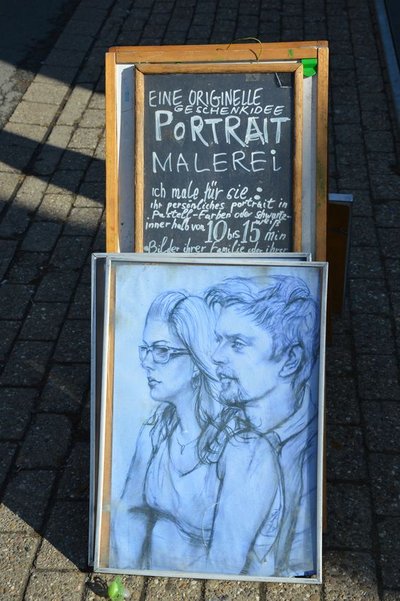 EINE ORIGINELLE
GESCHENKIDEE
PORTRAIT
MALEREi
ich male für sie:
ihr persönliches portrait in
Pastell-Farben oder schwartz-
weiß
innerhalb von 10 bis 15 min
Bilder ihrer Familie oder ihrer